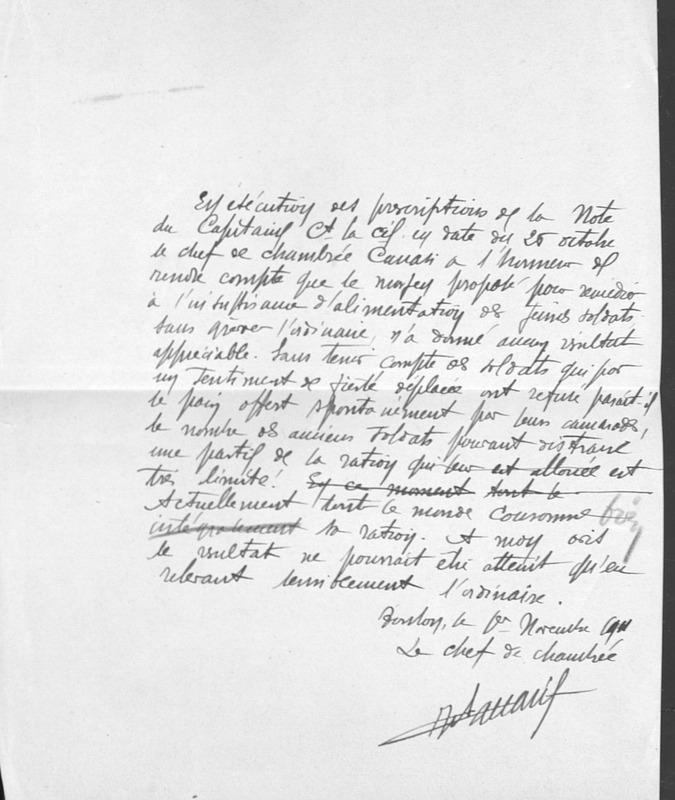 En exécution des prescriptions de la Note
du Capitaine Ct la Cie en date du 25 octobre
le chef de chambrée Canasi a l'honneur de
rendre compte que le moyen proposé pour remédier
à l'insuffisance d'alimentation des jeunes soldats
sans grever l'ordinaire, n'a donné aucun résultat
appréciable. Sans tenir compte des soldats qui par
un sentiment de fierté déplacée ont refusé paraît-il
le pain offert spontanément par leurs camarades,
le nombre des anciens soldats pouvant distraire
une partie de la ration qui leur est allouée est
très limité. En ce moment tout le
Actuellement tout le monde consomme bien
intégralement sa ration. A mon avis
le résultat ne pourrait être atteint qu'en
relevant sensiblement l'ordinaire.
Toulon, le 1er Novembre 1911
Le chef de chambrée